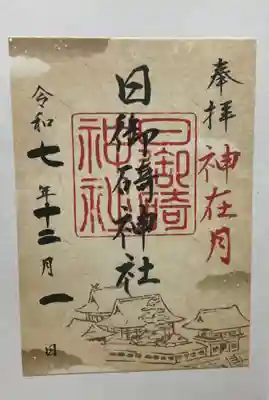 奉拝
神在月
日御碕神社
日御碕
神社
令和七年十二月一日